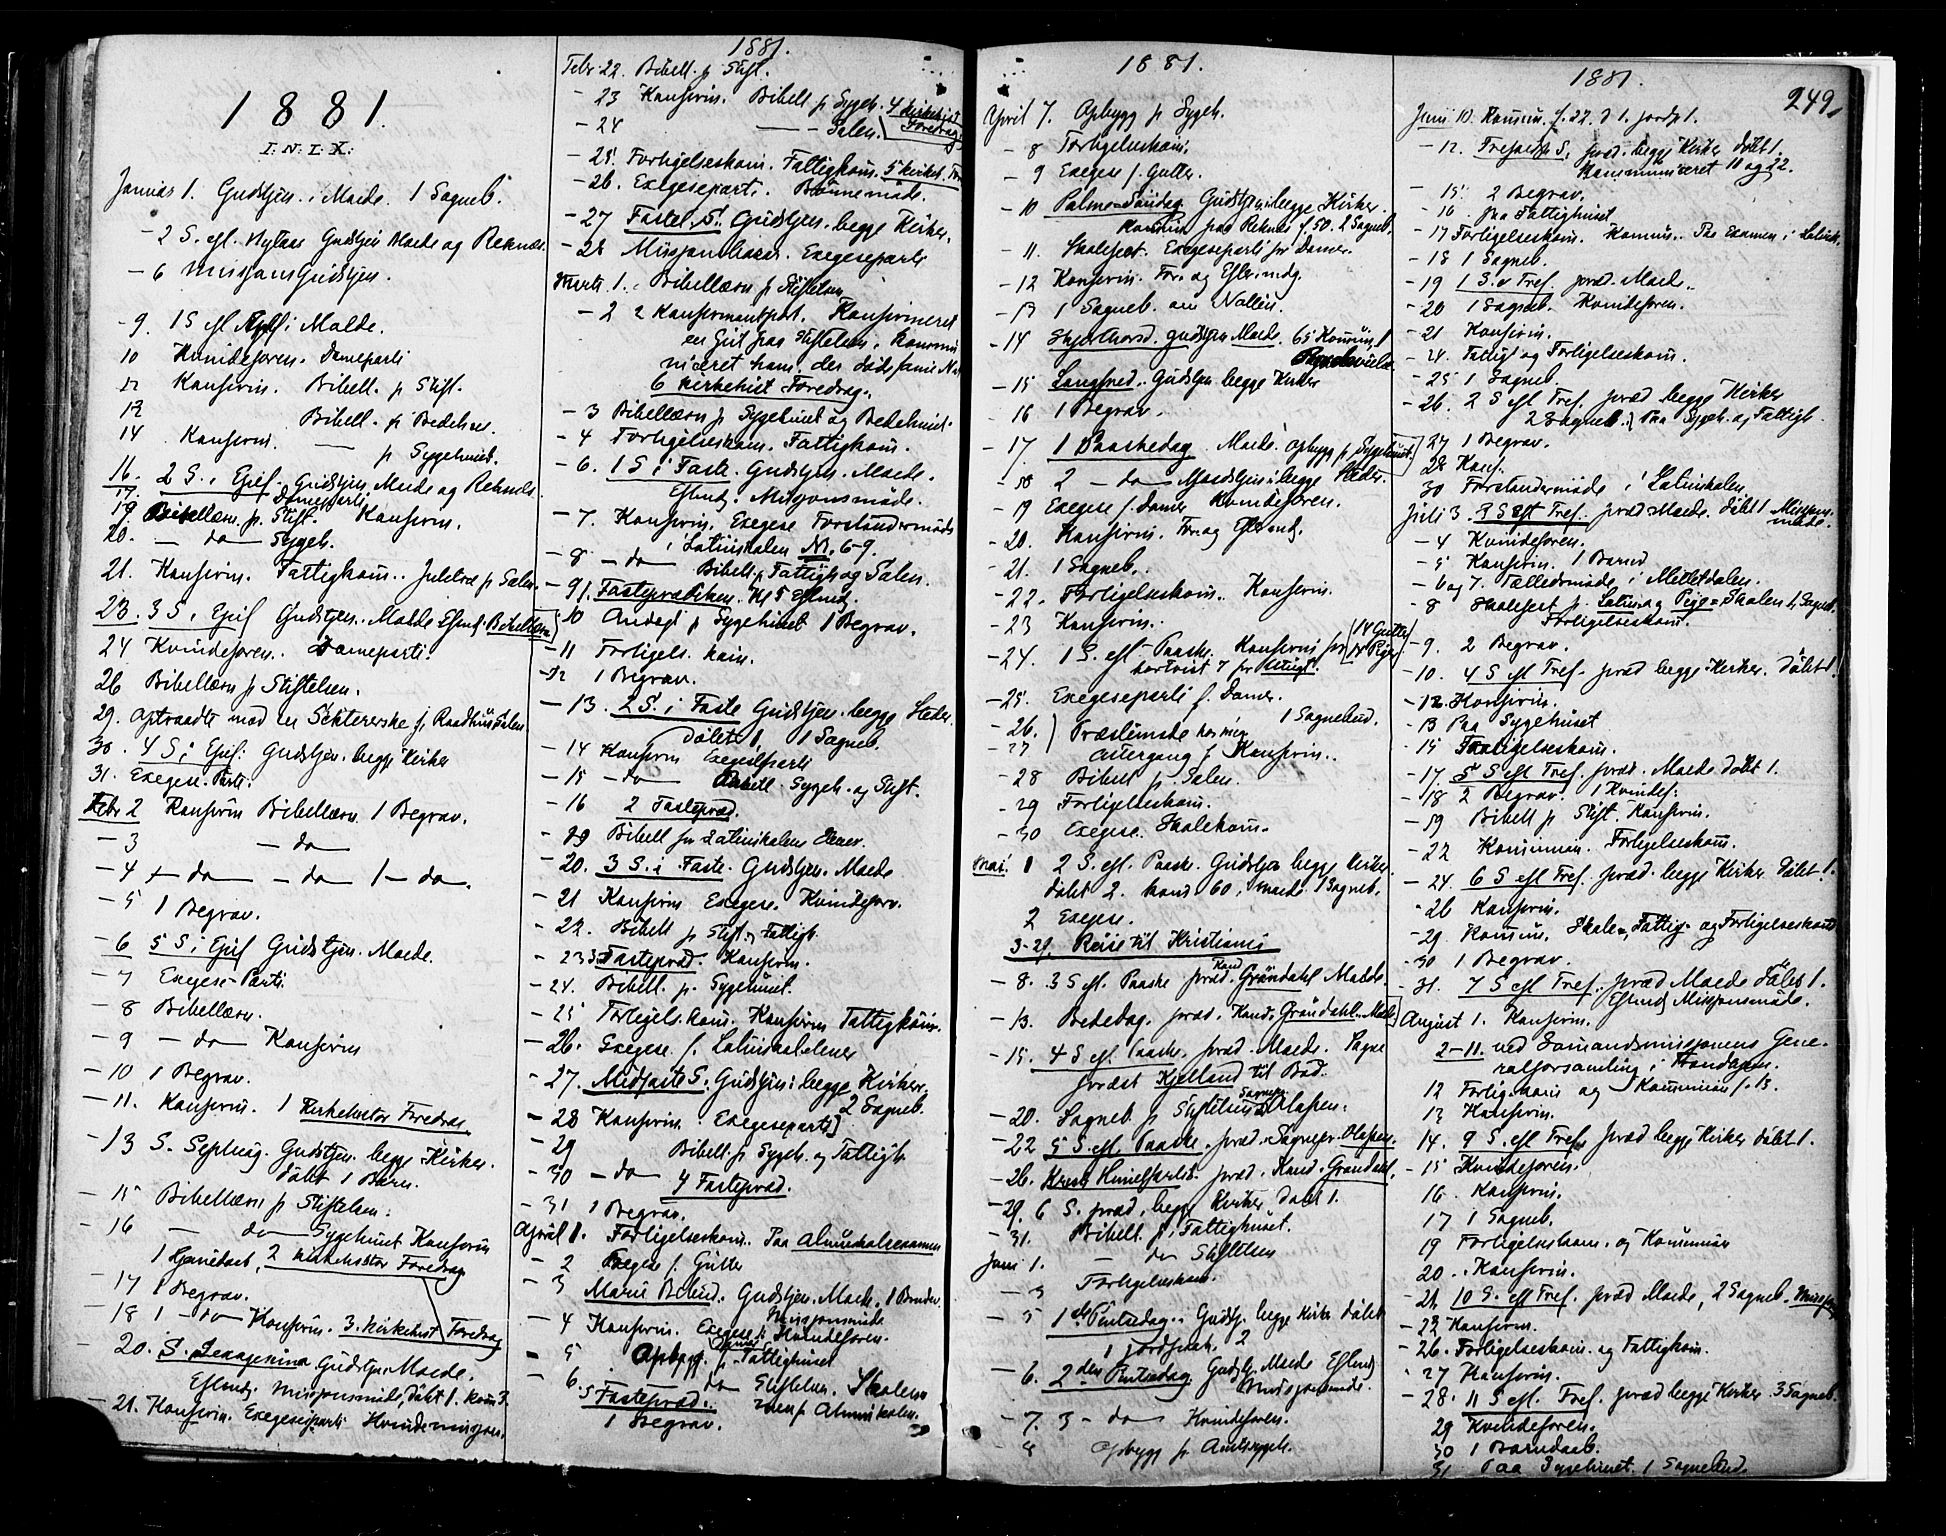 1881.
I: N: I: X:
Januar 1. Gudstjen. i Molde. 1 Sogneb.
- 2 S. efl. Nytaar Gudstjen Molde og Reknes.
- 6 Missions Gudstjen.
- 9. 1 S efl i Molde.
10 Kvindeforen. Dameparti
12 Konfirm. Bibell. p Stift.
12 Bibell. p Bedehus.
14 Konfirm. — p Sygehuset.
16. 2 S. i Epif. Gudstjen Molde og Reknes
17. Dameparti
19. Bibellæsn. p. Stift. Konfirm.
20. — do — Sygeh.
21. Konfirm. Fattigkom. Juletræ p Salen
23. 3 S. i Epif Gudstjen. Molde Eftmd. Bibellæsn
24 Kvindeforen. Dameparti.
26 Bibellæsn p Stiftelsen.
29. Optraadte mod en Sektererske p. Raadhus Salen
30. 4 S. i Epif. Gudstjen. begge Kirker
31. Exegese-Parti.
Febr 2 Konfirm Bibellæsn. 1 Begrav.
- 3 — do —
- 4 — do — — do — 1 — do.
- 5 1 Begrav.
- 6 5 S. i Epif Gudstjen. Molde.
- 7 Exegese-Parti.
- 8 Bibellæsn.
- 9 — do — Konfirm
- 10 1 Begrav.
- 11. Konfirm. 1 Kirkehistor Foredrag.
- 13 S. Septuag. Gudstjen. begge Kirker.
Døbt 1 Barn.
- 15 Bibellæsn p Stiftelsen.
- 16 — do — Sygehuset Konfirm
1 Hjemedaab, 2 kirkehistor Foredrag
- 17 1 Begrav.
- 18 1 — do — Konfirm. 3. kirkehist Foredrag
- 20. S. Sexagesima Gudstjen. Molde.
Eftmd. Missionsmøde, Døbt 1. kom 3.
- 21. Konfirm. Exegeseparti Kvindemission.
1881.
Febr. 22. Bibell. p Stift.
- 23 Konfirm. Bibell p Sygeh. 4 kirkehist
- 24 — — Salen. Foredrag.
- 25. Forligelseskom. Fattigkom. 5 kirkehist. For
- 26. Exegeseparti. Bønnemøde.
- 27 Fastel. S. Gudstjen. begge Kirker.
- 28 Missionsbasar. Exegeseparti
Marts 1. Bibellæsn p Stiftelsen
- 2 2 Konfirmantpart. Konfirmeret
en Gut paa Stiftelsen, kommu
niceret ham, der døde samme Nat
6 kirkehist Foredrag.
- 3 Bibellæsn p Sygehuset og Bedehuset.
- 4 Forligelseskom. Fattigkom.
- 6. 1 S. i Faste. Gudstjen. Molde.
Eftmd. Missionsmøde.
- 7. Konfirm. Exegese Forstandermøde
i Latinskolen Kl. 6-9.
- 8 — do — Bibell. p Fattigh og Salen.
- 9 1. Fasteprædiken. Kl 5 Eftmd.
10 Andagt p Sygehuset 1 Begrav.
- 11 Forligels. kom.
- 12 1 Begrav.
- 13. 2 S. i Faste Gudstjen. begge Steder.
Døbt 1 1 Sogneb.
- 14 Konfirm Exegeseparti
- 15 — do — Bibell. Sygeh. og Stift.
- 16 2 Fastepræd.
- 19 Bibell for Latinskolens Elever.
- 20. 3 S. i Faste. Gudstjen. Molde
- 21 Konfirm Exegese. Kvindeforv.
- 22. Bibell p Stift. og Fattigh
- 23 3 Fastepræd. Konfirm.
- 24. Bibell. p. Sygehuset.
- 25 Forligels. kom. Konfirm Fattigkom.
- 26. Exegese f. Latinskolelever
- 27. Midfaste S. Gudstjen i begge Kirker.
2 Sogneb.
- 28 Konfirm. Exegeseparti
- 29 Bibell. p Sygeh. og Fattigh
- 30 — do — 4 Fastepræd.
- 31 1 Begrav.
April 1. Forligelseskom. Paa Almueskoleexamen
- 2 Exegese f. Gutter
- 3 Mariæ Bebud. Gudstjen. Molde. 1 Brudev.
Missionsmøde
- 4 Konfirm. Exegese Kvindeforen.
- 5 Opbygg. p Fattighuset
- 6. do Stiftelsen. Skolem
5 Fastepræd.
1 Begrav.
1881.
April 7. Opbygg p Sygeh.
- 8 Forligelseskom.
- 9 Exegese f. Gutter.
- 10 Palme-Søndag. Gudstjen i begge Kirker.
Kommun paa Reknes f. 50. 2 Sogneb.
- 11. Skolefest. Exegeseparti for Damer.
- 12 Konfirm. For. og Efterm.
- 13 1 Sogneb.
- 14 Skjærthorsd. Gudstjen Molde. 65 Kommun. 1
- 15 Langfred. Gudstjen begge Kirker
16 1 Begrav.
- 17. 1 Paaskedag. Molde. Opbygg p Sygehuset.
- 18 2 — do — Gudstjen i begge Steder.
- 19 Exegese f. Damer Kvindeforen.
- 20. Konfirm. For. og Eftmd.
- 21. 1 Sogneb.
- 22. Forligelseskom. Konfirm.
- 23 Konfirm.
- 24. 1 S. efl. Paaske. Konfirm for 14 Gutter Piger
bortvist 7 for Utugt.
- 25. Exegeseparti f. Damer.
- 26. Præstemøde hos mig 1 Sognebud.
- 27 Altergang f Konfirm.
- 28 Bibell p. Salen.
- 29 Forligelseskom.
- 30 Exegese. Skolekom.
Mai 1 2 S. efl. Paaske. Gudstjen begge Kirker
døbt 2. 1 Sogneb.
2 Exegese.
3-29. Reise til Kristiania
- 8. 3 S efl. Paaske præd. Kand Grøndahl Molde
- 13. Bededag. præd. Kand. Grøndahl. Molde
- 15. 4 S. efl. Paaske. præd. Molde. Sogne
præst Kjelland til Bod.
- 20. Sogneb. p Stiftelsen Sognepr Olafsen.
- 22 5 S. efl Paaske. præd. Sognepr. Olafsen.
- 26. Kristi Himelfartsd. præd. Kand. Grøndahl.
- 29. 6 S. præd. begge Kirker Døbt 1.
- 31. Bibell. p. Fattighuset.
Juni 1. — do Stiftelsen
- 3 Forligelseskom.
- 5 1ste Pintsedag. Gudstj. begge Kirker Døbt
1 jordfæst. 2
- 6. 2den Pintsedag Gudstj. Molde Eftmd
Missionsmøde.
- 7. 3 — do — Kvindeforen.
- 8 Opbygg p. Amtssygeh.
1881.
249.
Juni 10. Kommun. f. 22. d 1. jordf. 1.
- 12. Trefoldigh S. præd. begge Kirker Døbt 1.
Kommuniceret 11 og 22.
- 15. 2 Begrav.
- 16. Paa Fattighuset
- 17 Forligelseskom. Kommun. Paa Examen i Latinsk.
- 18 1 Sogneb.
- 19 1 S. e Tref. præd. Molde.
- 20 1 Sogneb. Kvindeforen.
- 21 Konfirm.
- 24. Fattig og Forligelseskom.
- 25 1 Sogneb.
- 26. 2 S. efl Tref. præd begge Kirker
2 Sogneb. Paa Sygeh. og Fattigh.
- 27 1 Begrav.
- 28 Konf.
30 Forstandermøde i Latinskolen.
Juli 3. 3 S. efl Tref. præd. Molde. Døbt 1 Missions
møde.
- 4 Kvindeforen.
- 5 Konfirm.
- 6 og 7. Fællesmøde i Mitletdalen.
- 8 Skolefest p. Latin og Pige-Skolen 1 Sogneb.
Forligelseskom.
- 9. 2 Begrav.
- 10. 4 S efl Tref. præd begge Kirker. Døbt 1
- 12. Konfirm.
- 13 Paa Sygehuset
- 15 Forligelseskom.
- 17. 5 S efl Tref. præd. Molde Døbt 1.
- 18 2 Begrav. 1 Kvindef.
- 19 Bibell p Stift. Konfirm.
- 22 Kommun. Forligelseskom.
- 24. 6 S efl Tref. præd. begge Kirker Døbt 1.
- 26 Konfirm.
- 29. Kommun. Skole, Fattig- og Forligelseskom
- 30 1 Begrav.
- 31. 7 S efl Tref. præd Molde Døbt 1.
Eftmd Missionsmøde.
August 1. Konfirm.
2-11. ved Sømandsmissionens Gene-
ralforsamling i Trondhjem.
12 Forlig. kom og Kommun f. 13.
13 Konfirm.
14. 9 S. efl Tref præd begge Kirker døbt 1.
- 15 Kvindeforen.
16. Konfirm.
17 1 Sogneb.
19 Forligelseskom. og Kommun
20. Konfirm.
- 21. 10 S. efl Tref. præd Molde, 2 Sogneb. Mission
- 23 Konfirm.
- 26. Forligelseskom. og Fattigkom.
- 27 Konfirm.
- 28. 11 S efl. Tref. præd begge Kirker 3 Sogneb.
29 Kvindeforen.
30 1 Barnedaab.
31 Paa Sygehuset. 1 Sognebud.